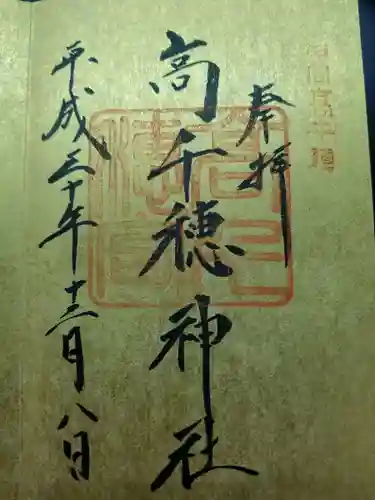 奉拝
高千穂神社
平成三十年十二月八日